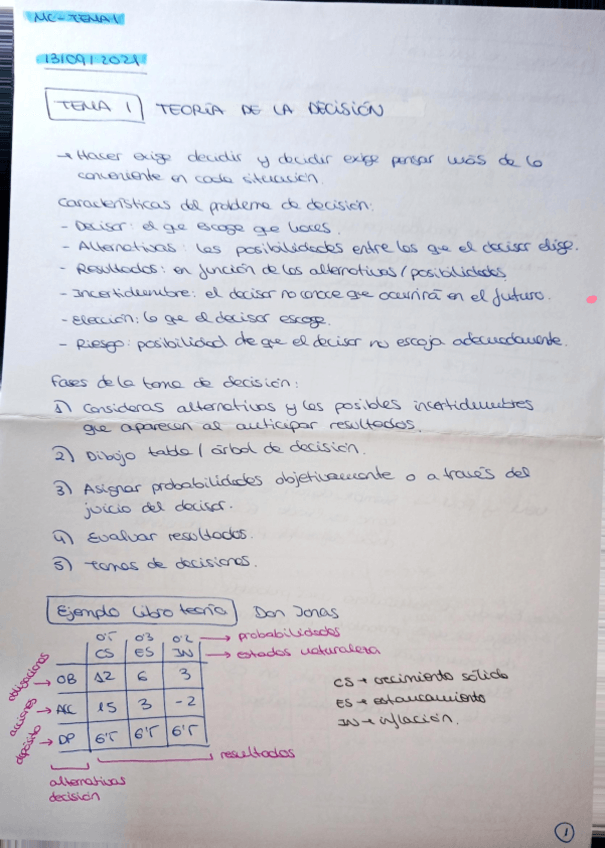 MC-TEMA 1
13/09/2021
TEMA 1 TEORÍA DE LA DECISIÓN
→ Hacer exige decidir y decidir exige pensar más de lo
conveniente en cada situación.
Características del problema de decisión:
- Decisor: el que escoge que haces.
- Alternativas: las posibilidades entre las que el decisor elige.
- Resultados: en función de las alternativas/posibilidades
- Incertidumbre: el decisor no conoce que ocurrirá en el futuro.
- Elección: lo que el decisor escoge.
- Riesgo: posibilidad de que el decisor no escoja adecuadamente.
Fases de la toma de decisión:
1) Consideras alternativas y las posibles incertidumbres
que aparecen al anticipar resultados.
2) Dibujo tabla / árbol de decisión.
3) Asignar probabilidades objetivamente o a través del
juicio del decisor.
4) Evaluar resultados.
5) Tomas de decisiones.
Ejemplo libro teoría Don Jonas
0'5 0'3 0'2 → probabilidades
CS ES IN → estados naturaleza
obligaciones → OB 12 6 3
acciones → AC 15 3 -2
depósito → DP 6'5 6'5 6'5
CS → crecimiento sólido
ES → estancamiento
IN → inflación.
resultados
alternativas
decisión
1